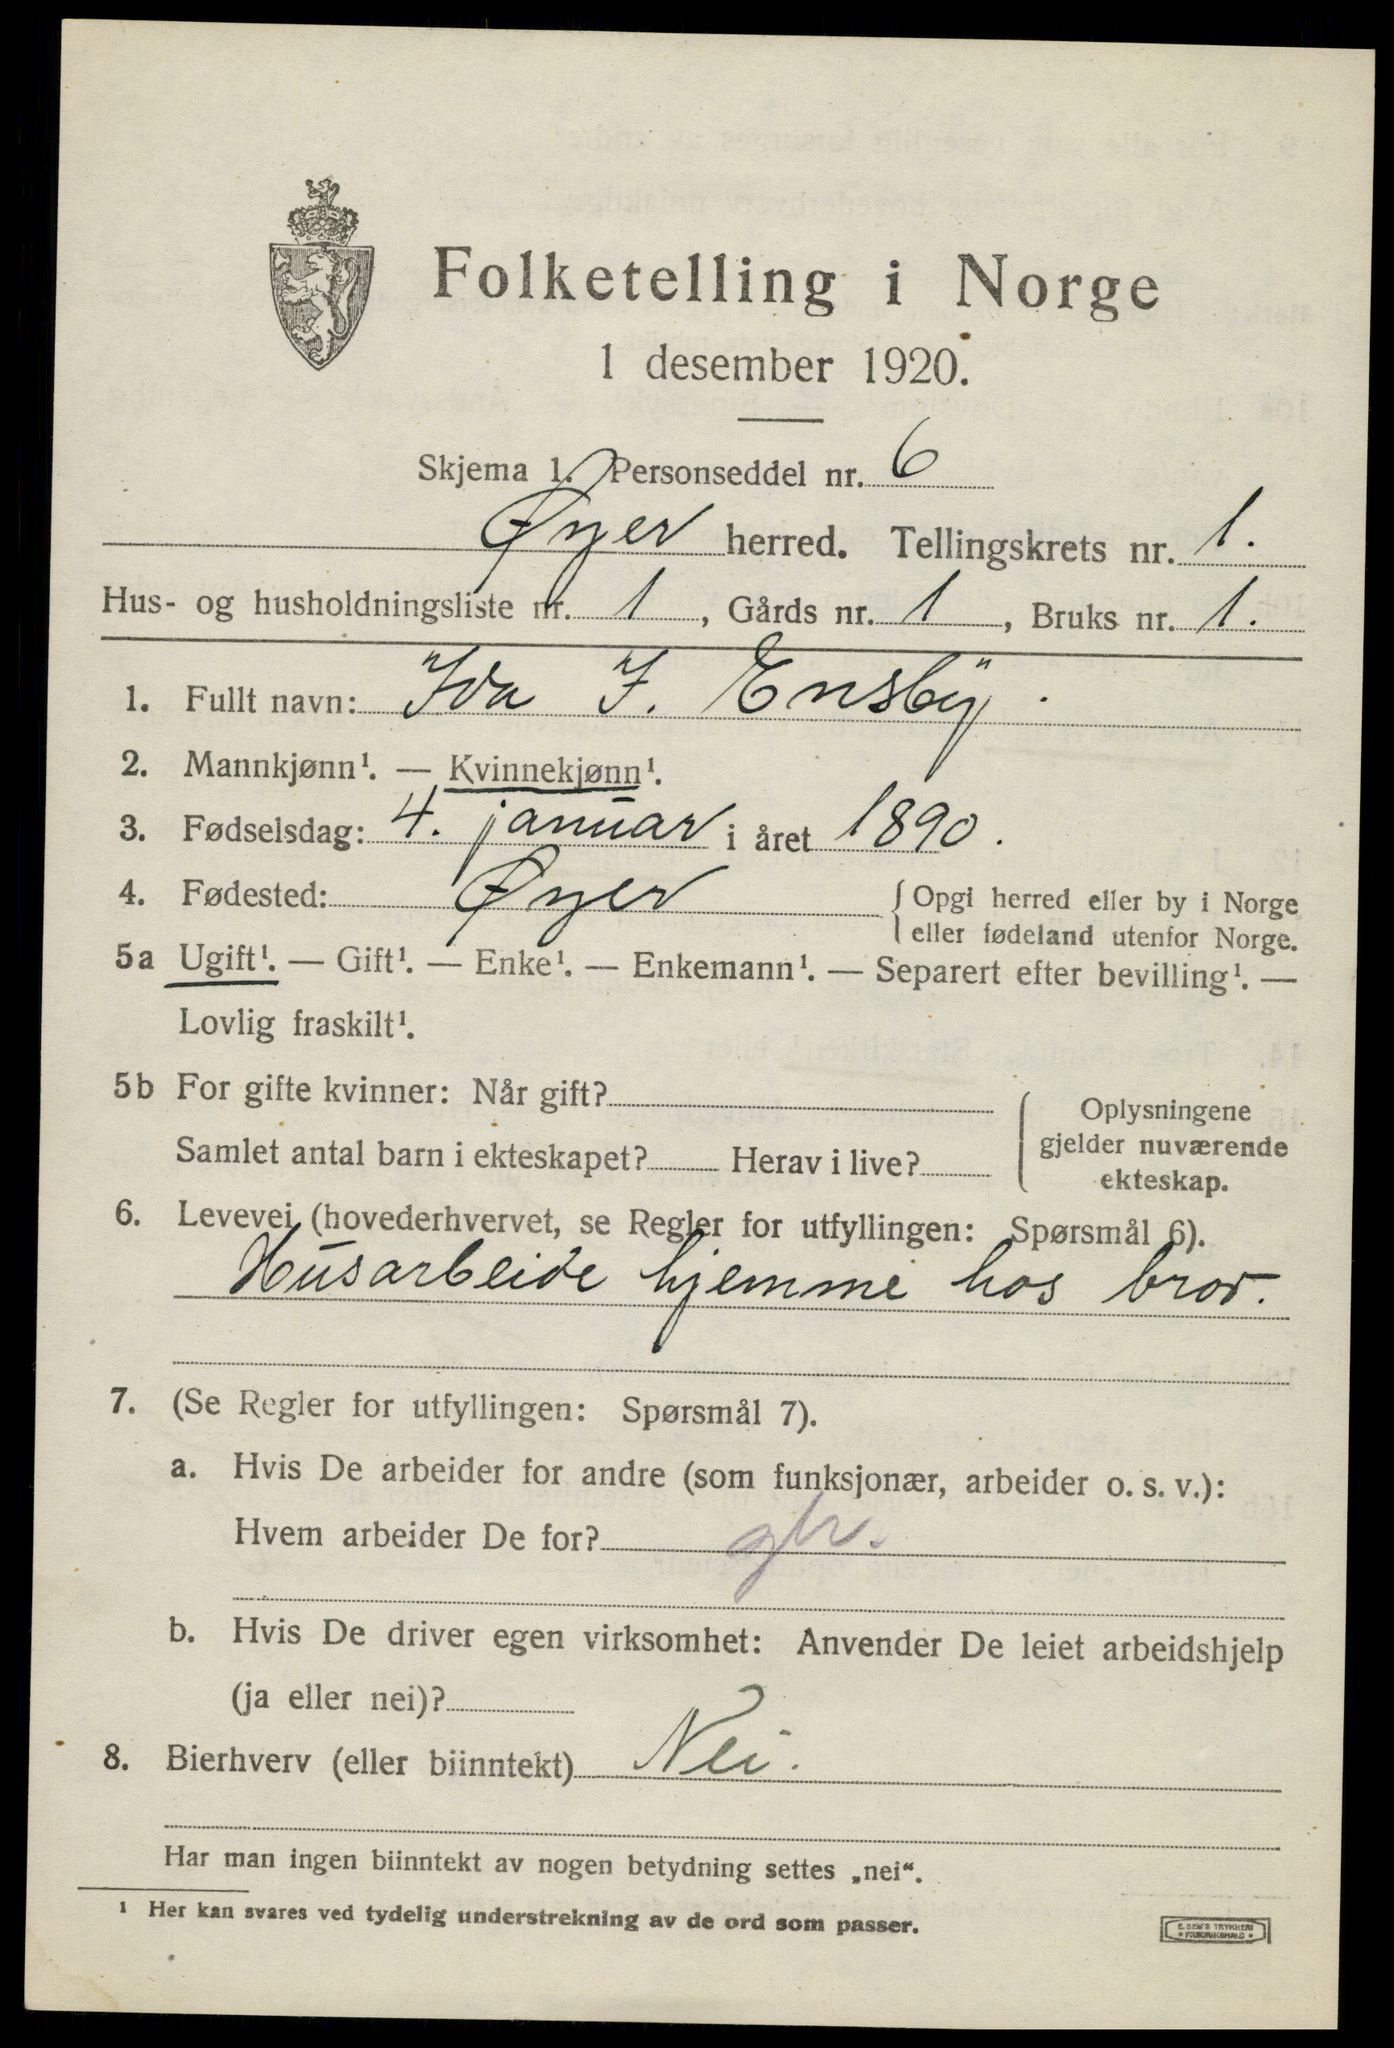 Folketelling i Norge
1 desember 1920.
Skjema 1. Personseddel nr. 6
Øyer herred. Tellingskrets nr. 1.
Hus- og husholdningsliste nr. 1, Gårds nr. 1, Bruks nr. 1.
1. Fullt navn: Ida J. Ensby.
2. Mannkjønn¹. — Kvinnekjønn¹.
3. Fødselsdag: 4. januar i året 1890.
4. Fødested: Øyer { Opgi herred eller by i Norge
eller fødeland utenfor Norge.
5a Ugift¹. — Gift¹. — Enke¹. — Enkemann¹. — Separert efter bevilling¹. —
Lovlig fraskilt¹.
5b For gifte kvinner: Når gift?
Samlet antal barn i ekteskapet? Herav i live?
Oplysningene
gjelder nuværende
ekteskap.
6. Levevei (hovederhvervet, se Regler for utfyllingen: Spørsmål 6).
Husarbeide hjemme hos bror.
7. (Se Regler for utfyllingen: Spørsmål 7).
a. Hvis De arbeider for andre (som funksjonær, arbeider o. s. v.):
Hvem arbeider De for?
b. Hvis De driver egen virksomhet: Anvender De leiet arbeidshjelp
(ja eller nei)?
8. Bierhverv (eller biinntekt) Nei.
Har man ingen biinntekt av nogen betydning settes „nei“.
¹ Her kan svares ved tydelig understrekning av de ord som passer.
E. SEM'S TRYKKERI
• FREDRIKSHALD •